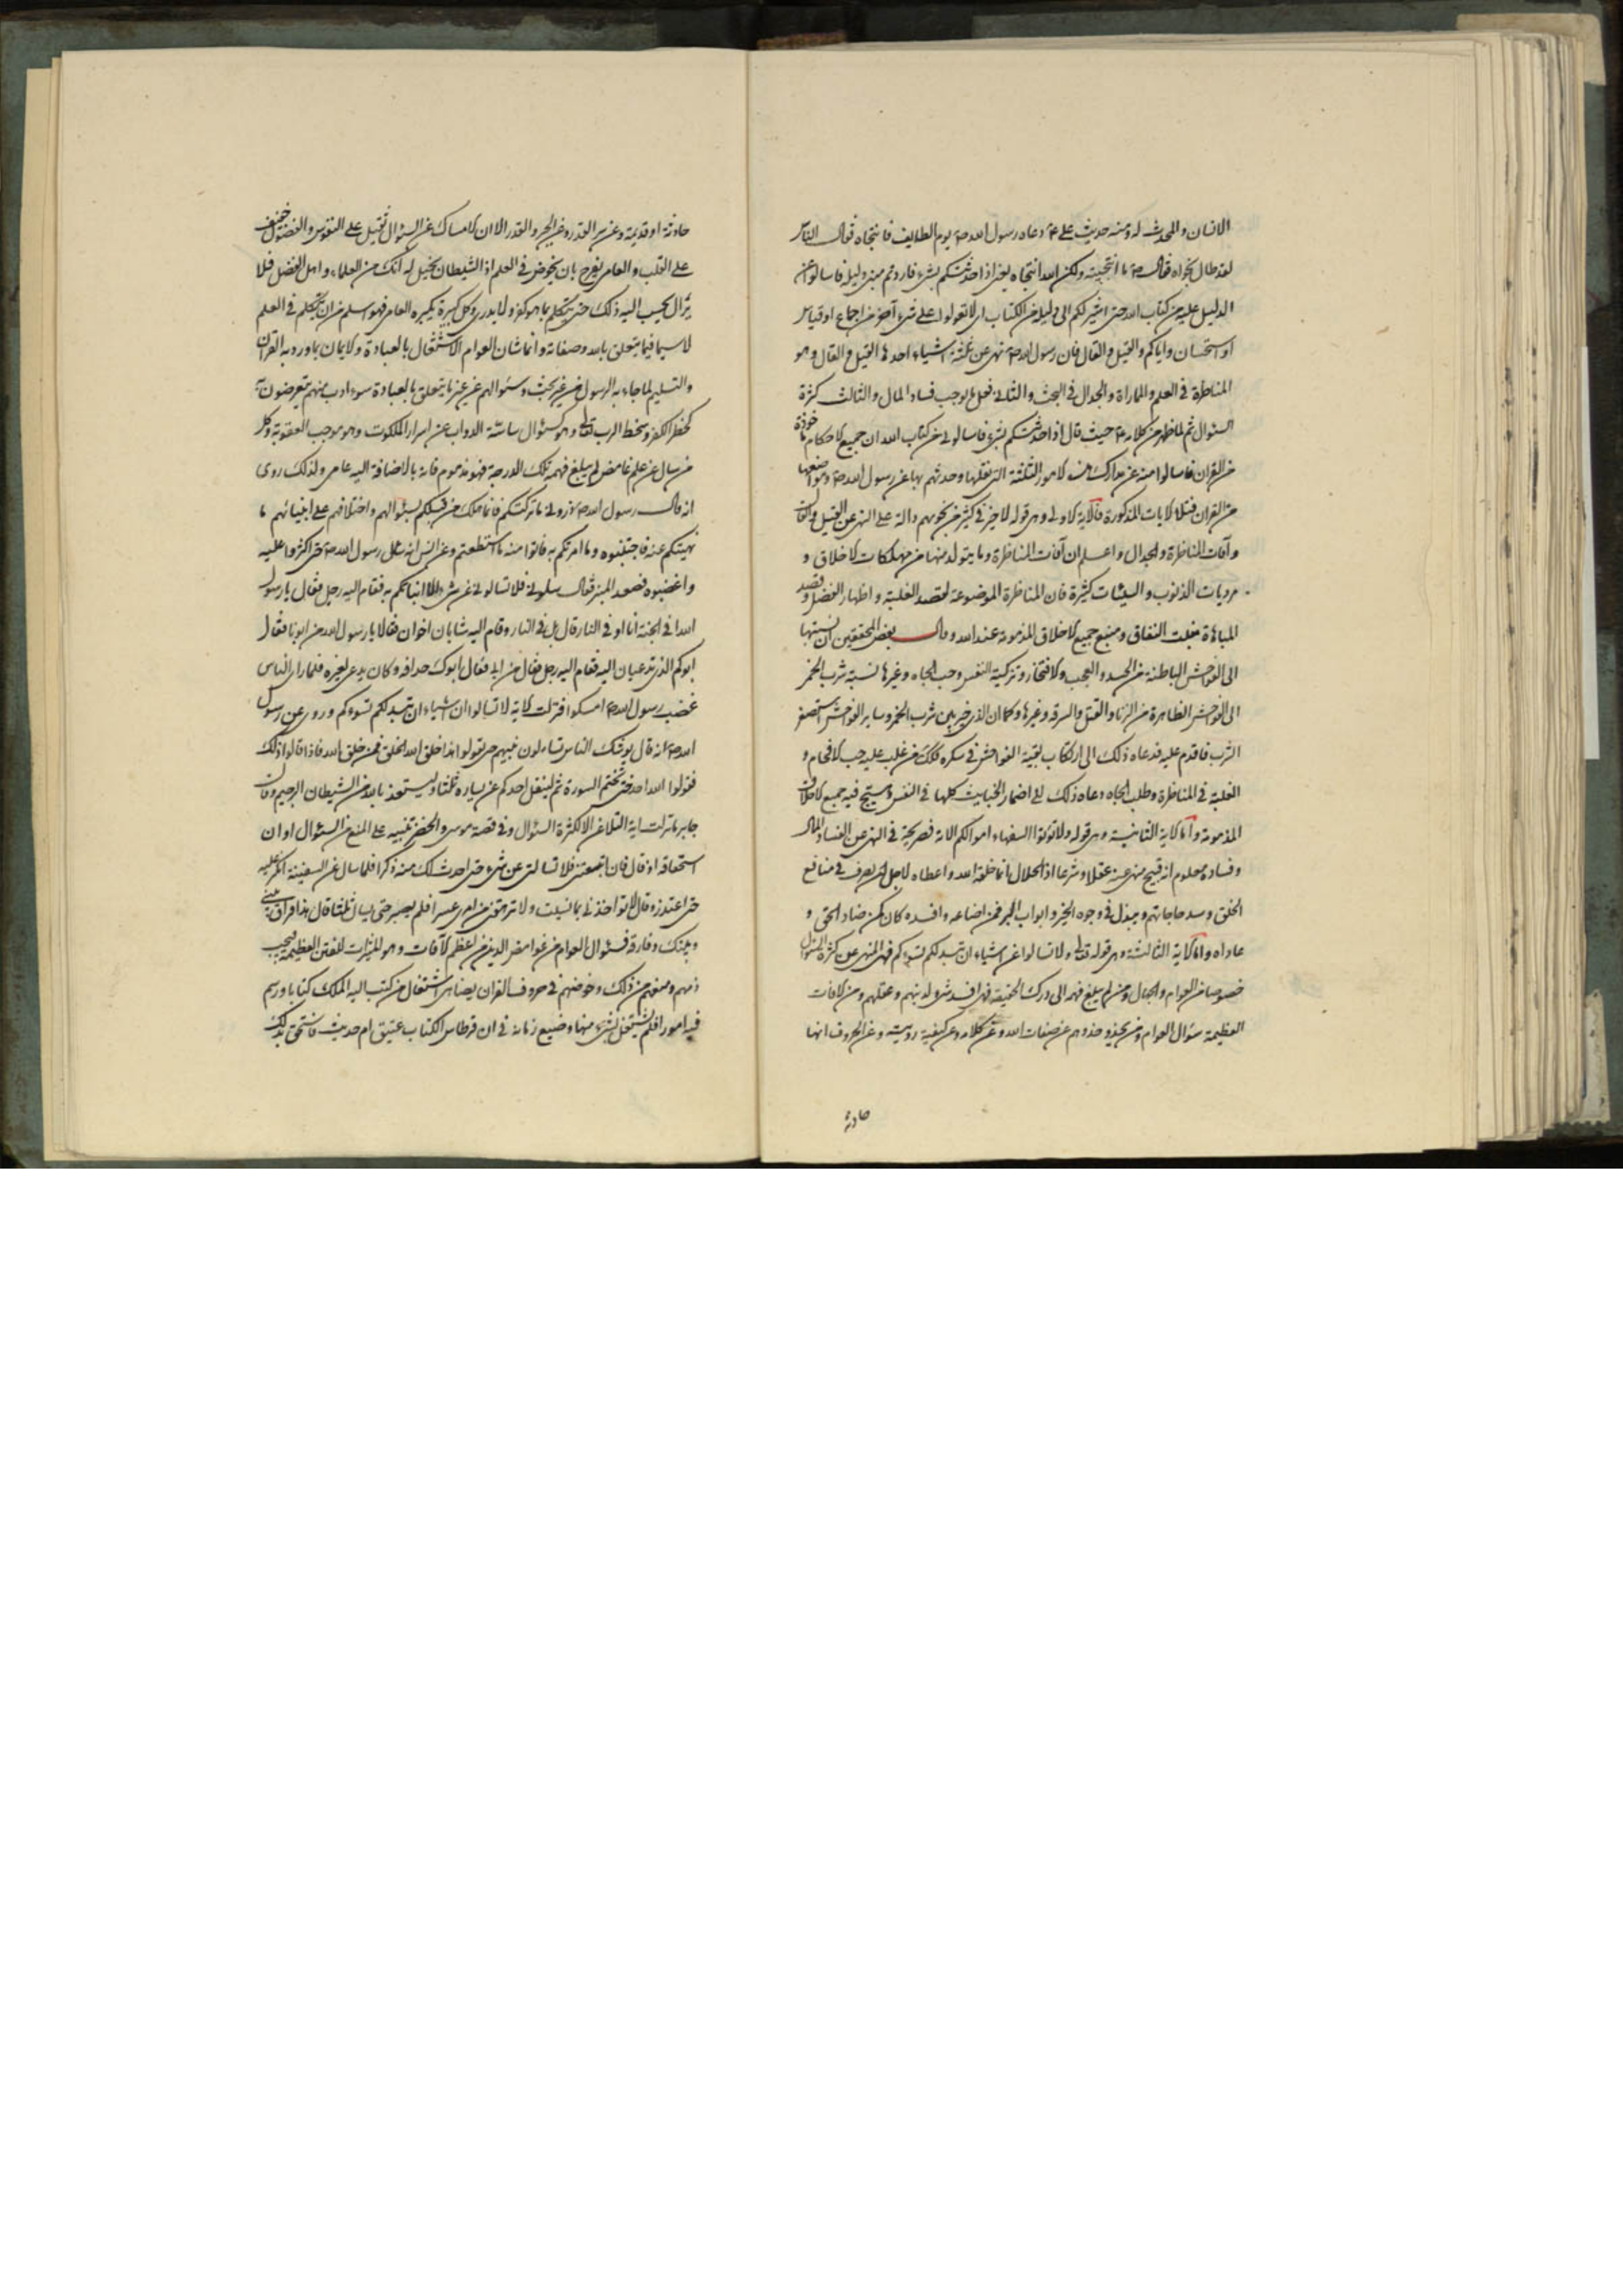 الانسان والمحدث له ومنه حديث علي ع دعاه رسول الله ص يوم الطايف فانتجاه فقال الناس
لقد طال نجواه فقال ص ما انتجيته ولكن الله انتجاه اذا حدثتكم بشيء فاردتم دليله فاسالوا عن
الدليل عليه من كتاب الله حتى اشير لكم الى دليله من الكتاب اي لا تعولوا على شيء آخر من اجماع او قياس
او استحسان واياكم والقيل والقال فان رسول الله ص نهى عن ثلثة اشياء احدها القيل والقال وهو
المناظرة في العلم والمماراة والجدال في البحث والثاني فعل ما يوجب فساد المال والثالث كثرة
السئوال ثم لما ظهر من كلامه ع حيث قال اذا حدثتكم بشيء فاسالوني من كتاب الله ان جميع الاحكام ماخوذة
من القران فاسالوا منه عن مدارك هذه الامور الثلثة التي نقلها وحدثهم بها عن رسول الله ص ومواضعها
من القران فتلا الايات المذكورة فالاية الاولى وهي قوله لا خير في كثير من نجويهم دالة على النهي عن القيل والقال
وآفات المناظرة والجدال واعلم ان آفات المناظرة وما يتولد منها من مهلكات الاخلاق و
مرديات الذنوب والسيئات كثيرة فان المناظرة الموضوعة لقصد الغلبة واظهار الفضل وقصد
المباهاة منبع جميع الاخلاق المذمومة عند الله وقال بعض المحققين ان نسبتها
الى الفواحش الباطنة من الحسد والعجب والافتخار وتزكية النفس وحب الجاه وغيرها نسبة شرب الخمر
الى الفواحش الظاهرة من الزنا والقتل والسرقة وغيرها وكما ان الذي خير بين شرب الخمر وساير الفواحش استصغر
الشرب فاقدم عليه فدعاه ذلك الى ارتكاب بقية الفواحش في سكره فكذلك من غلب عليه حب الافحام و
الغلبة في المناظرة وطلب الجاه دعاه ذلك الى اضمار الخبايث كلها في النفس وهيج فيه جميع الاخلاق
المذمومة واما الاية الثانية وهي قوله ولا تؤتوا السفهاء اموالكم الاية فصريحة في النهي عن افساد المال
وفساده معلوم انه قبيح منهي عنه عقلا وشرعا اذ الحلال انما خلقه الله واعطاه لاجل ان يصرف في منافع
الخلق وسد حاجاتهم ويبذل في وجوه الخير وابواب البر فمن اضاعه وافسده كان كمن ضاد الحق و
عاداه واما الاية الثالثة وهي قوله تعالى ولا تسالوا عن اشياء ان تبد لكم تسؤكم فهي للنهي عن كثرة السئوال
خصوصا من العوام والجهال ومن لم يبلغ فهمه الى درك الحقيقة فهي افسد شيء لدينهم وعقلهم ومن الافات
العظيمة سئوال العوام ومن يحذو حذوهم عن صفات الله وعن كلامه وعن كيفية رؤيته وعن الحروف انها
حادثة
حادثة او قديمة وعن سر القدر وعن الجبر والقدر الا ان الامساك عن السئوال ثقيل على النفوس والفضول خفيف
على القلب والعامي يفرح بان يخوض في العلم اذ الشيطان يخيل له انك من العلماء واهل الفضل فلا
يزال يحبب اليه ذلك حتى يتكلم بما هو كفر ولا يدري وكل كبيرة يكبره العامي فهو اسلم من ان يتكلم في العلم
لا سيما فيما يتعلق بالله وصفاته وانما شان العوام الاشتغال بالعبادة والايمان بما ورد به القران
والتسليم لما جاء به الرسول من غير بحث وسئوالهم عن غير ما يتعلق بالعبادة سوء ادب منهم يتعرضون به
لخطر الكفر وسخط الرب تعالى وهو كسئوال ساسة الدواب عن اسرار الملكوت وهو موجب العقوبة وكل
من سال عن علم غامض لم يبلغ فهمه تلك الدرجة فهو مذموم فانه بالاضافة اليه عامي ولذلك روى
انه قال رسول الله ص ذروني ما تركتكم فانما هلك من قبلكم بسئوالهم واختلافهم على انبيائهم ما
نهيتكم عنه فاجتنبوه وما امرتكم به فاتوا منه ما استطعتم وعن انس انه سئل رسول الله ص حتى اكثروا عليه
واغضبوه فصعد المنبر فقال سلوني فلا تسالوني عن شيء الا انباتكم به فقام اليه رجل فقال يا رسول
الله افي الجنة انا او في النار قال بل في النار وقام اليه شابان اخوان فقالا يا رسول الله من ابونا فقال
ابوكم الذي تدعيان اليه فقام اليه رجل فقال من ابي فقال ابوك حذافه وكان يدعى لغيره فلما راى الناس
غضب رسول الله ص امسكوا فنزلت الاية لا تسالوا عن اشياء ان تبد لكم تسؤكم وروي عن رسول
الله ص انه قال يوشك الناس يتساءلون بينهم حتى يقولوا هذا خلق الله الخلق فمن خلق الله فاذا قالوا ذلك
فقولوا الله احد حتى تختم السورة ثم ليتفل احدكم عن يساره ثلثا وليستعذ بالله من الشيطان الرجيم وقال
جابر ما نزلت اية التلاعن الا لكثرة السئوال وفي قصة موسى والخضر تنبيه على المنع من السئوال اوان
استحقاقه اذ قال فان اتبعتني فلا تسالني عن شيء حتى احدث لك منه ذكرا فلما سال عن السفينة انكر عليه
حتى اعتذر وقال لا تؤاخذني بما نسيت ولا ترهقني من امري عسرا فلم يصبر حتى سال ثلثا قال هذا فراق بيني
وبينك وفارقه فسئوال العوام عن غوامض الدين من اعظم الافات وهو من المثيرات للفتن العظيمة فيجب
ذمهم ومنعهم من ذلك وخوضهم في حروف القران يضاهي اشتغال من كتب اليه الملك كتابا ورسم
فيه امورا فلم يشتغل بشيء منها وضيع زمانه في ان قرطاس الكتاب عتيق ام حديث فاستحق بذلك